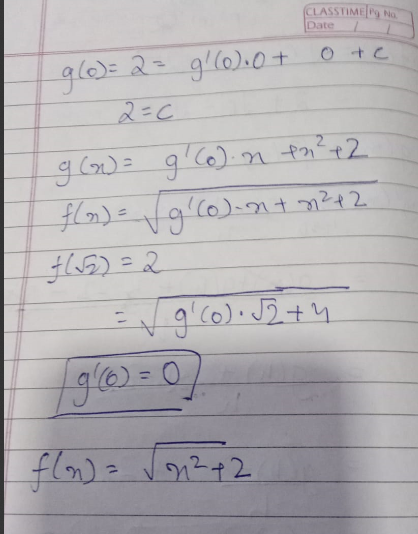 CLASSTIME Pg No.
Date / /
g(0) = 2 = g'(0)·0 + 0 + c
2 = c
g(x) = g'(0)·x + x² + 2
f(x) = √(g'(0)·x + x² + 2)
f(√2) = 2
= √(g'(0)·√2 + 4)
g'(0) = 0
f(x) = √(x² + 2)